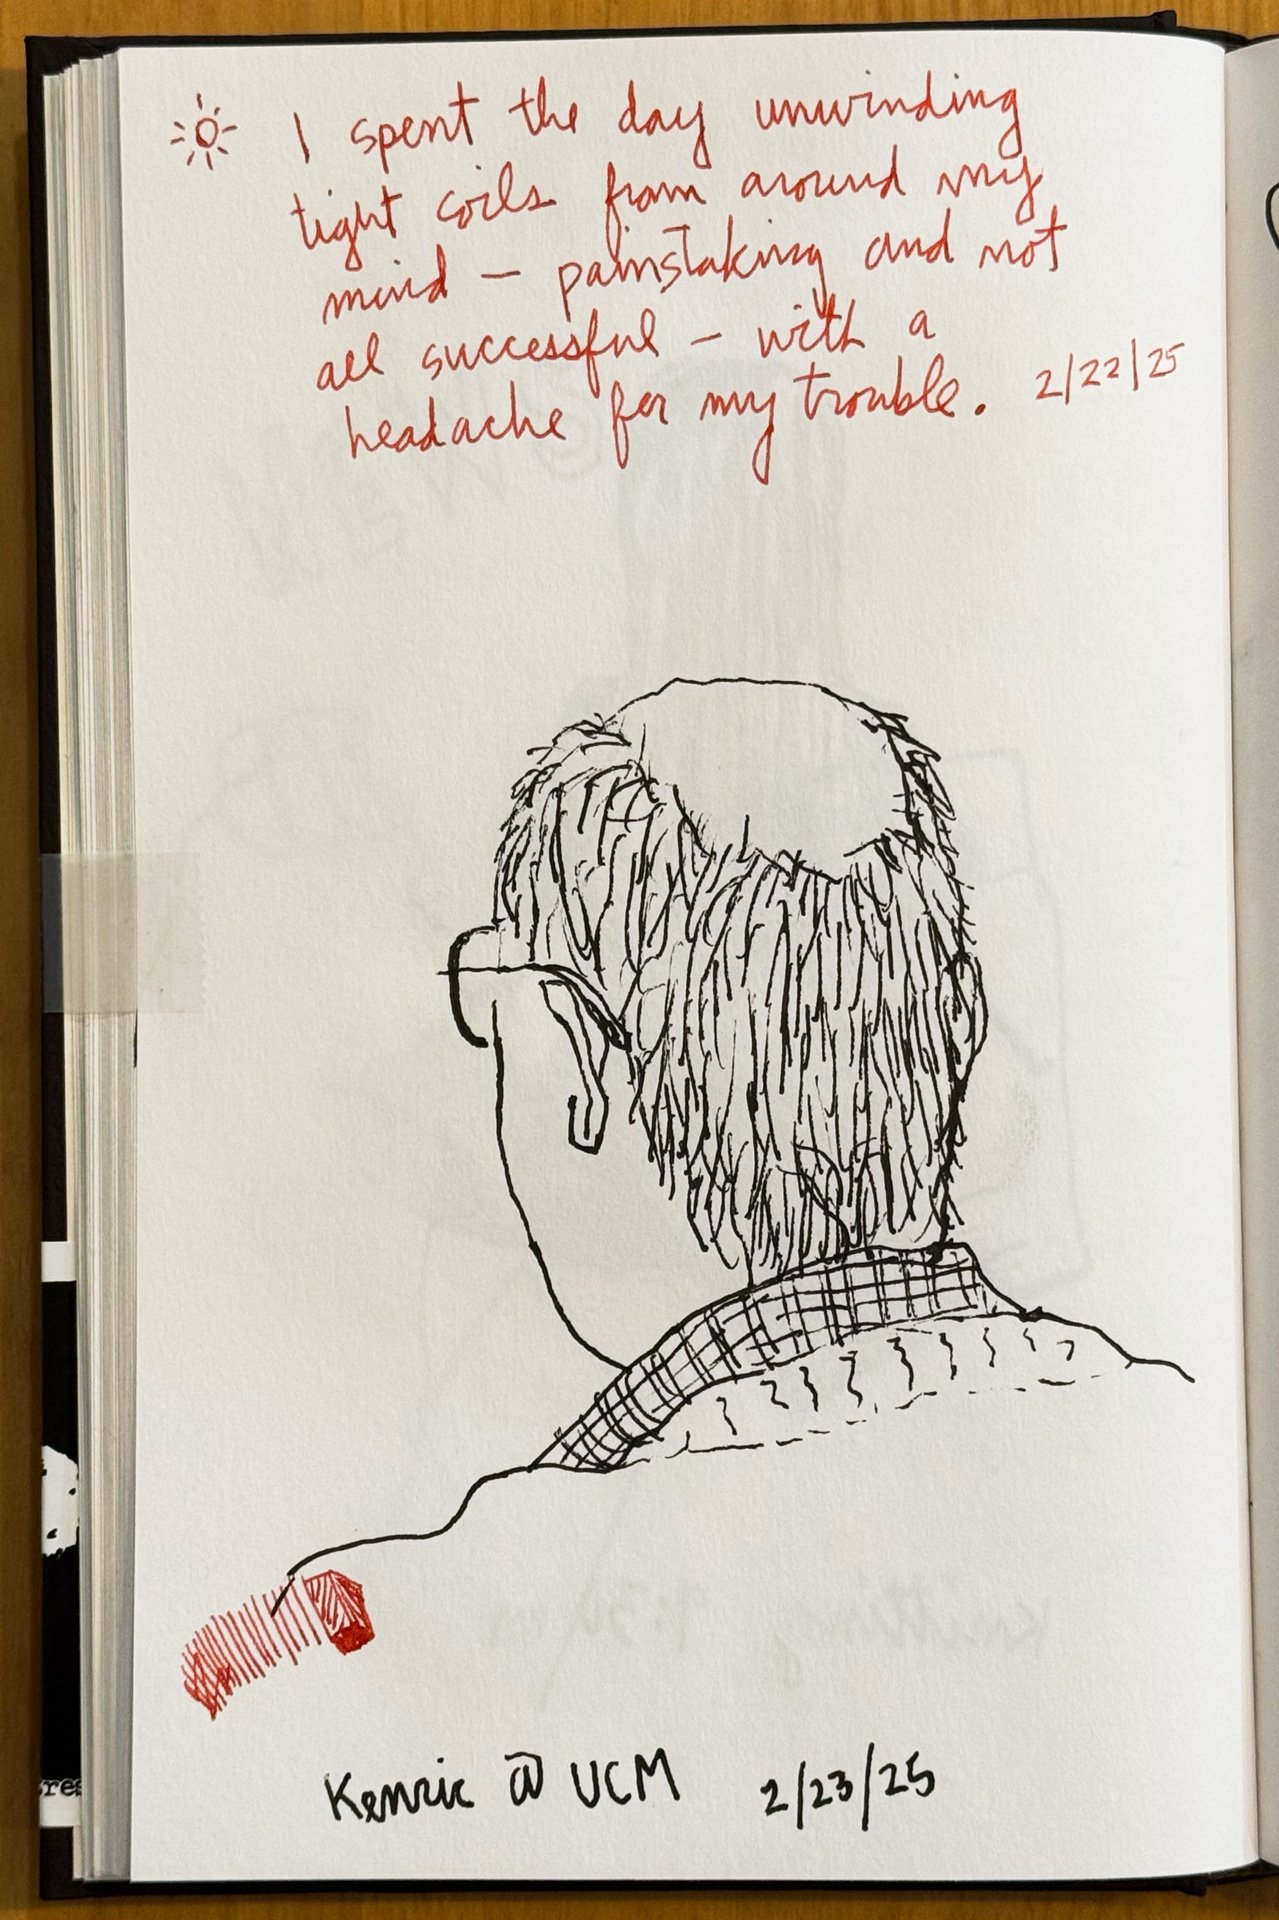 I spent the day unwinding
tight coils from around my
mind – painstaking and not
all successful – with a
headache for my trouble. 2/22/25
Kenric @ UCM 2/23/25